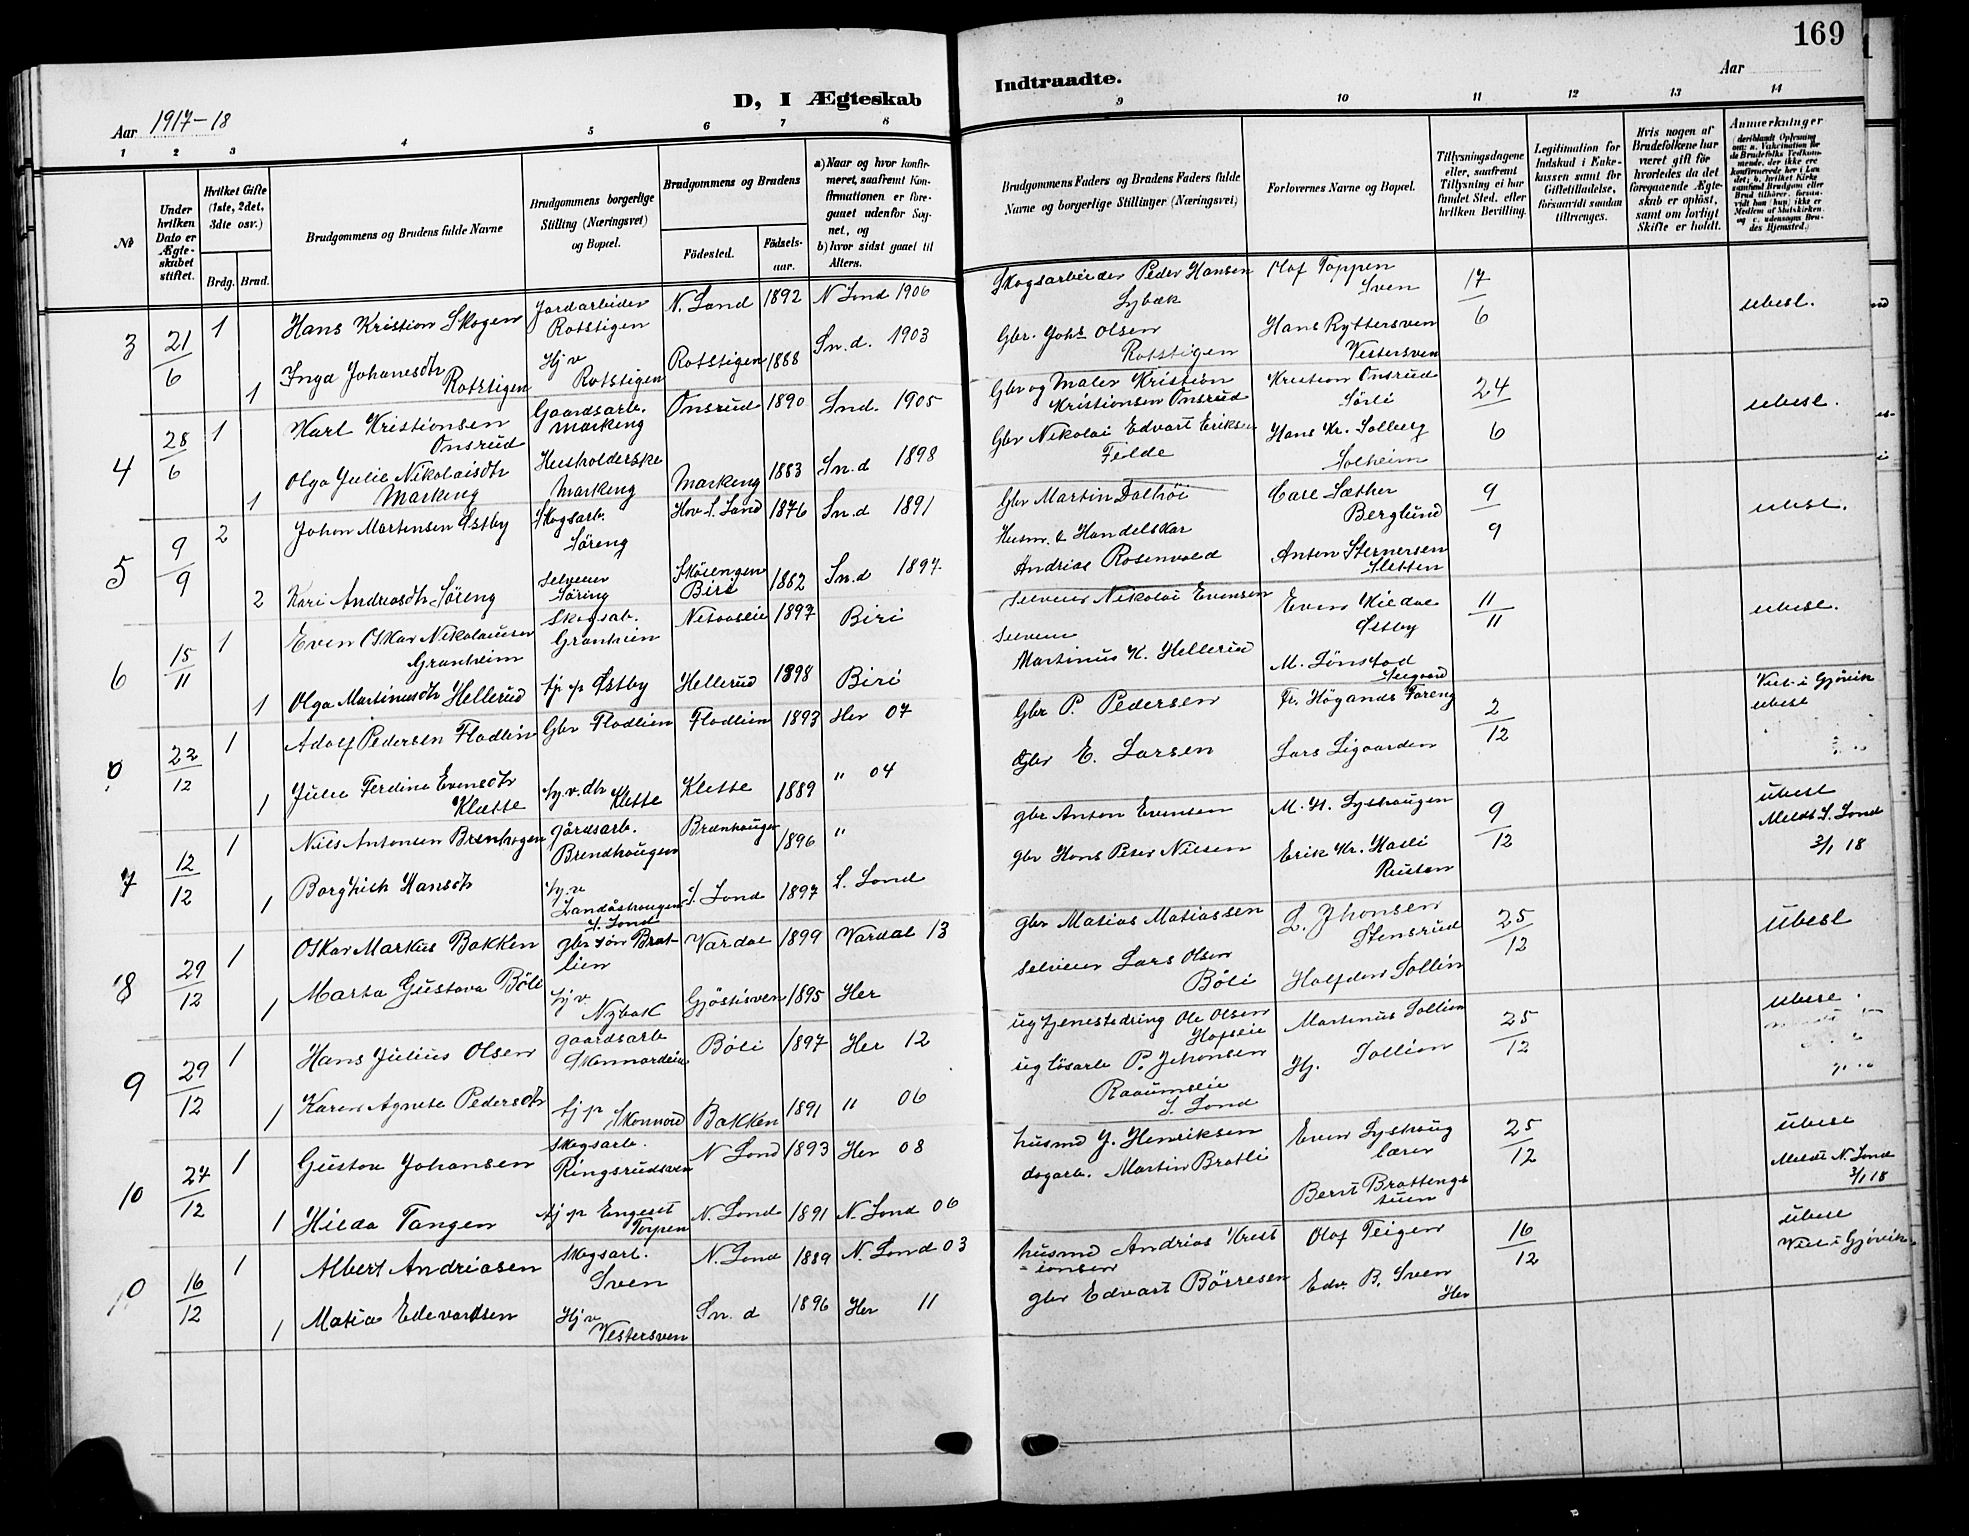 169
D, I Ægteskab Indtraadte.
Aar 1917-18
Aar
1 2 3 4 5 6 7 8
9 10 11 12 13 14
№
Under hvilken Dato er Ægteskabet stiftet.
Hvilket Gifte (1ste, 2det, 3dte osv.)
Brdg. Brud.
Brudgommens og Brudens fulde Navne
Brudgommens borgerlige Stilling (Næringsvei) og Bopæl.
Brudgommens og Brudens
Födested.
Födselsaar.
a) Naar og hvor konfirmeret, saafremt Konfirmationen er foregaaet udenfor Sognet, og
b) hvor sidst gaaet til Alters.
Brudgommens Faders og Brudens Faders fulde Navne og borgerlige Stillinger (Næringsvei)
Forlovernes Navne og Bopæl.
Tillysningsdagene eller, saafremt Tillysning ei har fundet Sted, efter hvilken Bevilling.
Legitimation for Indskud i Enkekassen samt for Giftetilladelse, forsaavidt saadan tiltrænges.
Hvis nogen af Brudefolkene har været gift för hvorledes da det foregaaende Ægteskab er oplöst, samt om lovligt Skifte er holdt.
Anmærkninger
3 21/6 1 Hans Kristian Skogen Jordarbider Rotstigen N. Land 1892 N Land 1906 Skogsarbeider Peder Hansen Lybæk Olaf Toppen Sven 17/6 ubesl.
1 Inga Johanesdtr Rotstigen Hj v Rotstigen Rotstigen 1888 Sn.d. 1903 Gbr. Johs Olsen Rotstigen Hans Ryttersven Vestersven
4 28/6 1 Karl Kristiansen Onsrud Gaardsarb. Markeng Onsrud 1890 Snd. 1905 Gbr og Maler Kristian Kristiansen Onsrud Kristian Onsrud Sörli 24/6 ubesl.
1 Olga Julie Nikolaisdtr Markeng Husholderske Markeng Markeng 1883 Sn.d 1898 Gbr Nikolai Edvart Eriksen Felde Hans Kr. Solberg Solheim
5 9/9 2 Johan Martensen Østby Skogsarb. Söreng Hov S. Land 1876 Sn.d 1891 Gbr Martin Dalhöi Carl Sæther Berglund 9/9 ubesl.
2 Kari Andreasdtr Söreng Selveier Söring Biri 1882 Sn.d 1897 Husm. & Handelskar Andrias Rosenvold Anton Sternersen Sletten
6 15/11 1 Even Oskar Nikolaisen Granheim Skogsab. Granheim 1897 Biri Selveier Nikolai Evensen Even Kildal Østby 11/11 ubesl.
1 Olga Martinusdtr Hellerud tj p Østby Hellerud 1898 Biri Selveier Martinus K. Hellerud M. Lönstad
22/12 1 Adolf Pedersen Flodlien Gbr Flodlien Flodlien 1893 Her 07 Gbr P. Pedersen Fr. Högands Toreng 2/12 Viet i Gjøvik ubesl
1 Julie Ferdine Evensdtr Klette hj. v. dtr Klette Klette 1889 " 04 Gbr E. Larsen Lars Ligaarden
7 12/12 1 Nils Antonsen Brenhagen gårdsarb. Brendhougen Brænhougen 1896 " gbr Anton Evensen M. H. Lyshaugen 9/12 ubesl Meldt S. Land 3/1 18
1 Borghild Hansdtr hj. v S. Land S. Land 1897 S. Land gbr Hans Peter Nilsen Erik Kr. Hasli Rustan
8 29/12 1 Oskar Markus Bakken gbr sön Bratlien Vardal 1899 Vardal 13 gbr Matias Matiassen L. Jhonsen Stensrud 25/12 ubesl
1 Marta Gustava Böli hj v. Nybak Gjöstisven 1895 Her selveier Lars Olsen Böli Halfdan Sollin
9 29/12 1 Hans Julius Olsen gaardsarb Skonnordeie Böli 1897 Her 12 ug tjenestedring Ole Olsen Hofseie Martinus Sollien 25/12 ubesl.
1 Karen Agnete Pedersdtr tj p Skonnord Bakken 1891 " 06 ug lösarb P. Johonsen Raaumseie S. Land Hj. Sollien
10 27/12 1 Gustav Johansen Skogsarb. Ringsrudsven N Land 1893 Her 08 husmd J. Henriksen Even Lyshoug lærer 25/12 ubesl Meldt N. Land 3/1 18
1 Hilda Tangen tj p Engeset Torpen N. Land 1891 N. Land 06 dagarb. Martin Bratli Bernt Brattengstuen
10 16/12 1 Albert Andriasen Skogsarb. Sven N. Land 1889 N. Land 03 husmd Andrias Kristiansen Olaf Teigen 16/12 ubesl Viet i Gjøvik
1 Matia Edevardsen Hj v Vestersven Sn. d 1896 Her 11 gbr Edvart Börresen Edv. B. Sven Her